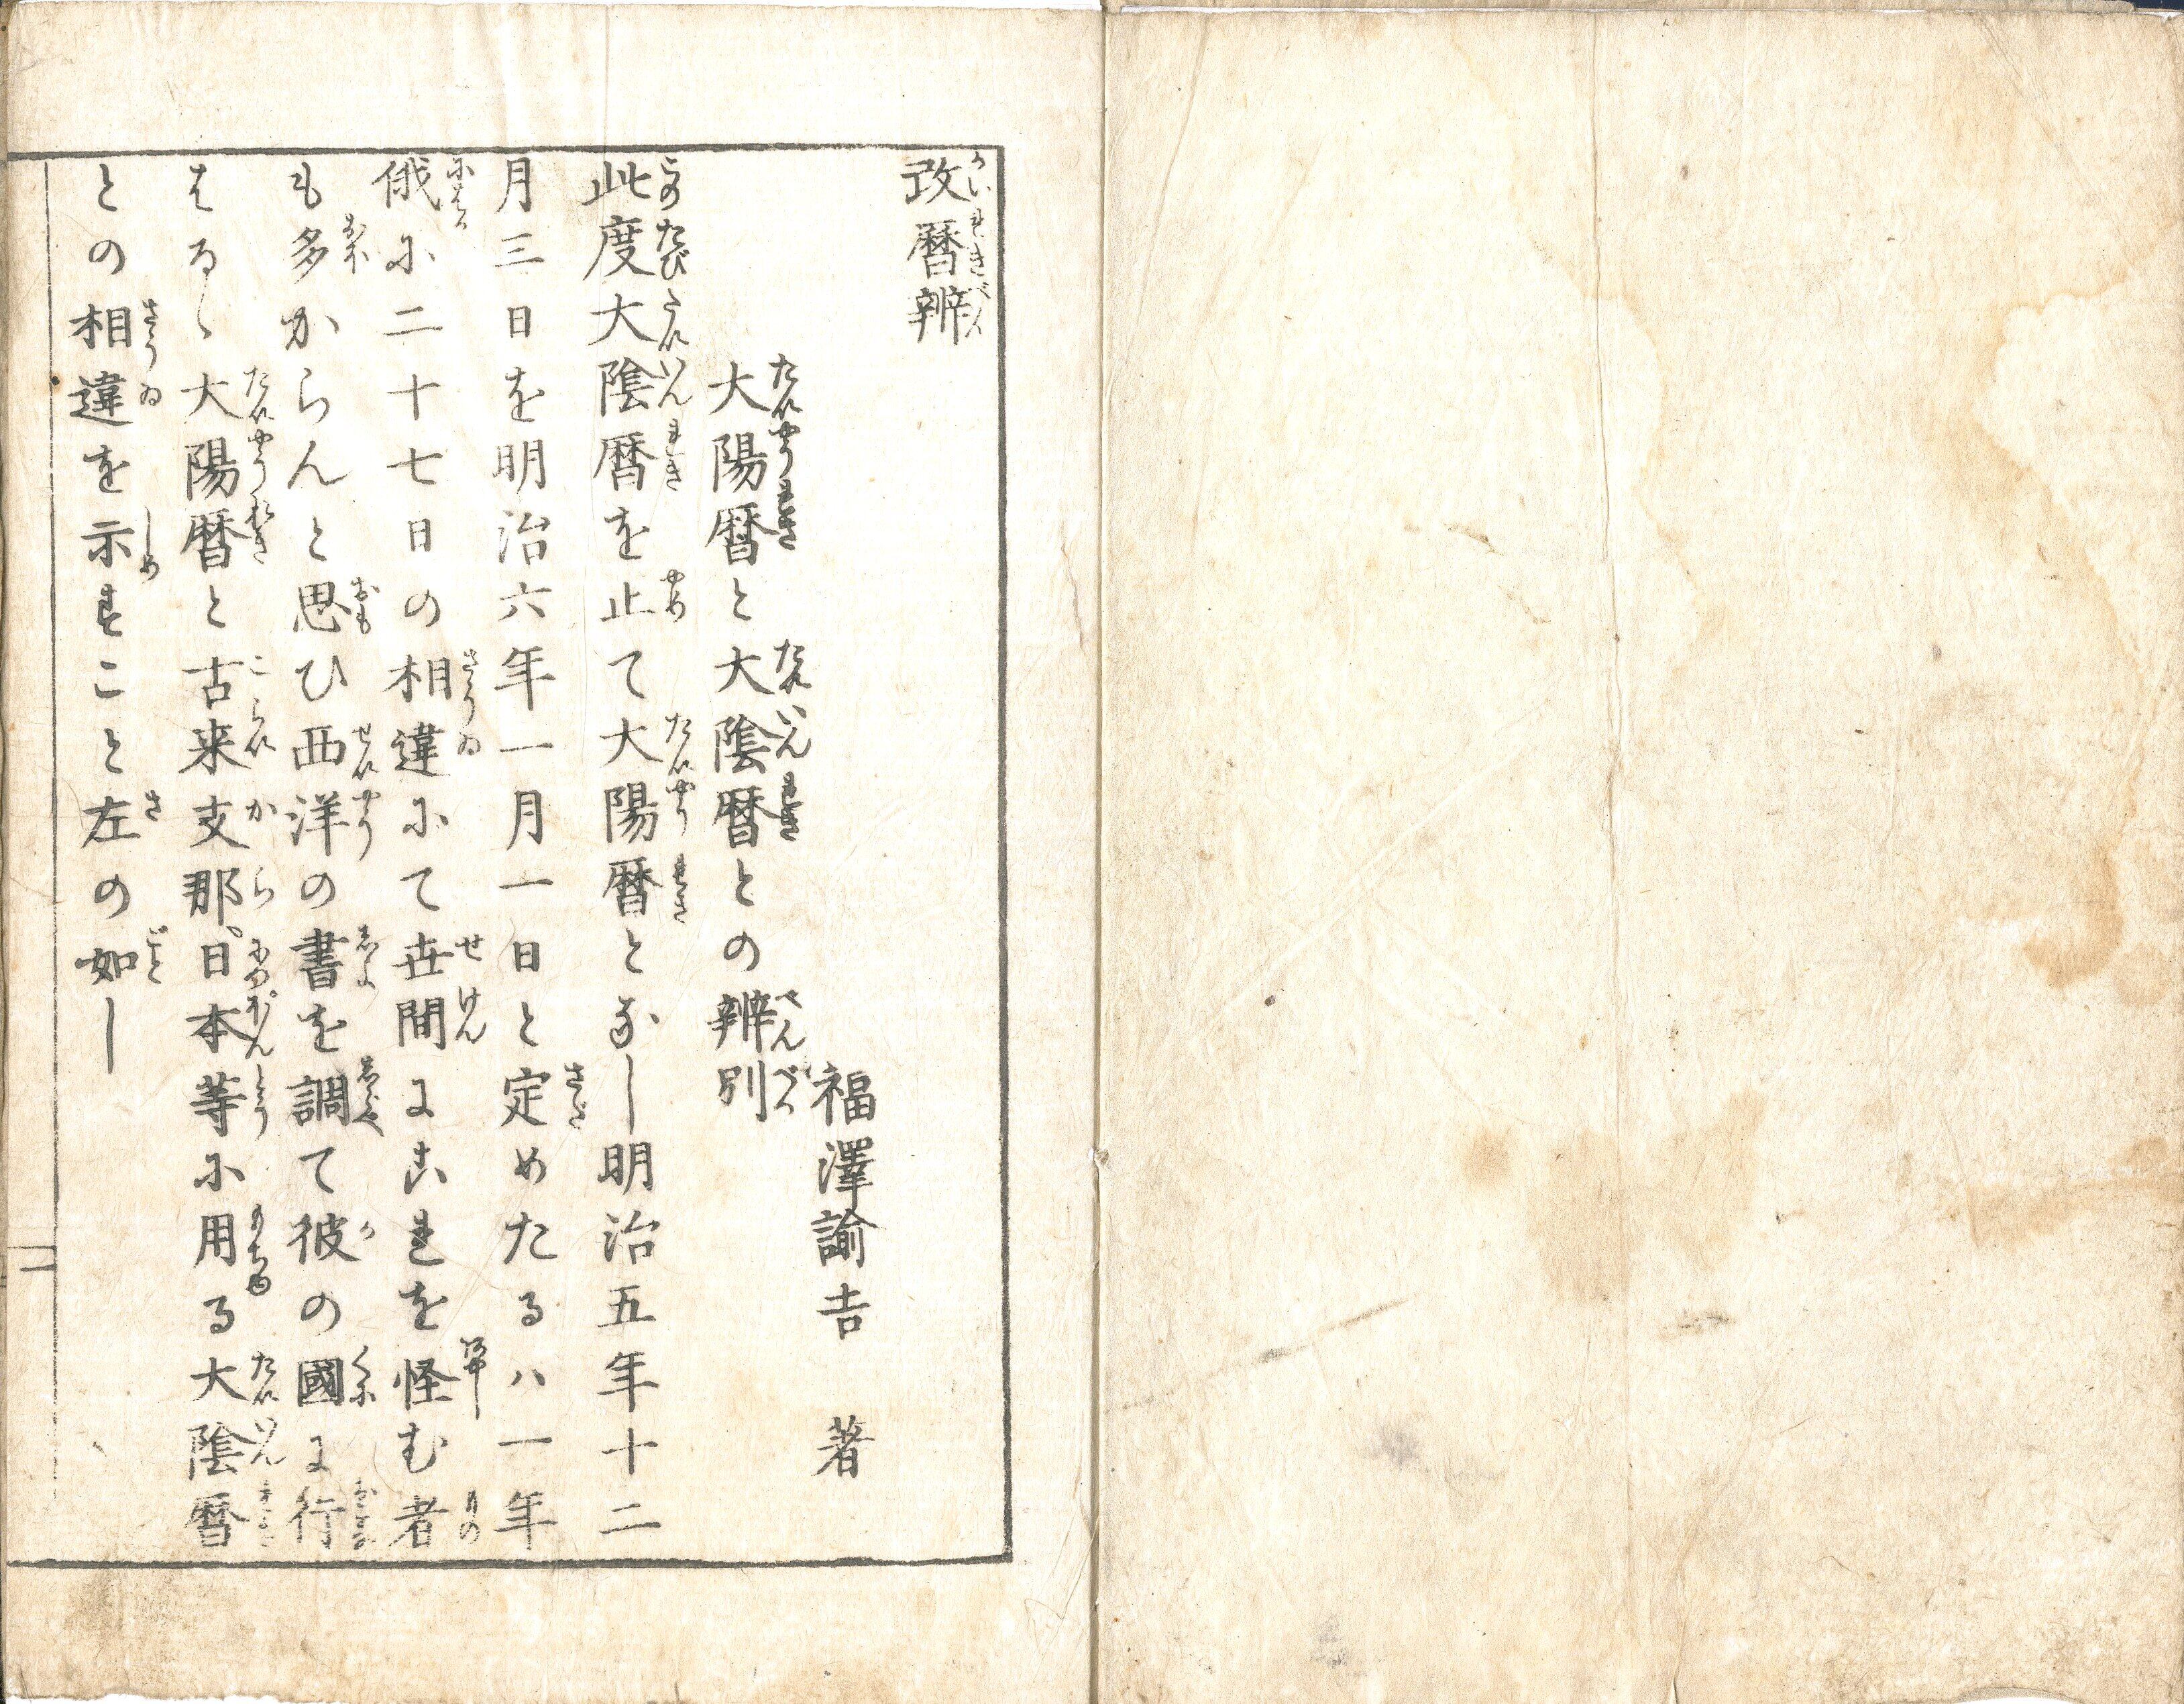 改暦辨
福澤諭吉 著
大陽暦と大陰暦との辨別
此度大陰暦を止て大陽暦となし明治五年十二
月三日を明治六年一月一日と定めたるハ一年
俄に二十七日の相違にて世間にこれを怪む者
も多からんと思ひ西洋の書を調て彼の國に行
はるゝ大陽暦と古来支那、日本等に用る大陰暦
との相違を示すこと左の如し
一